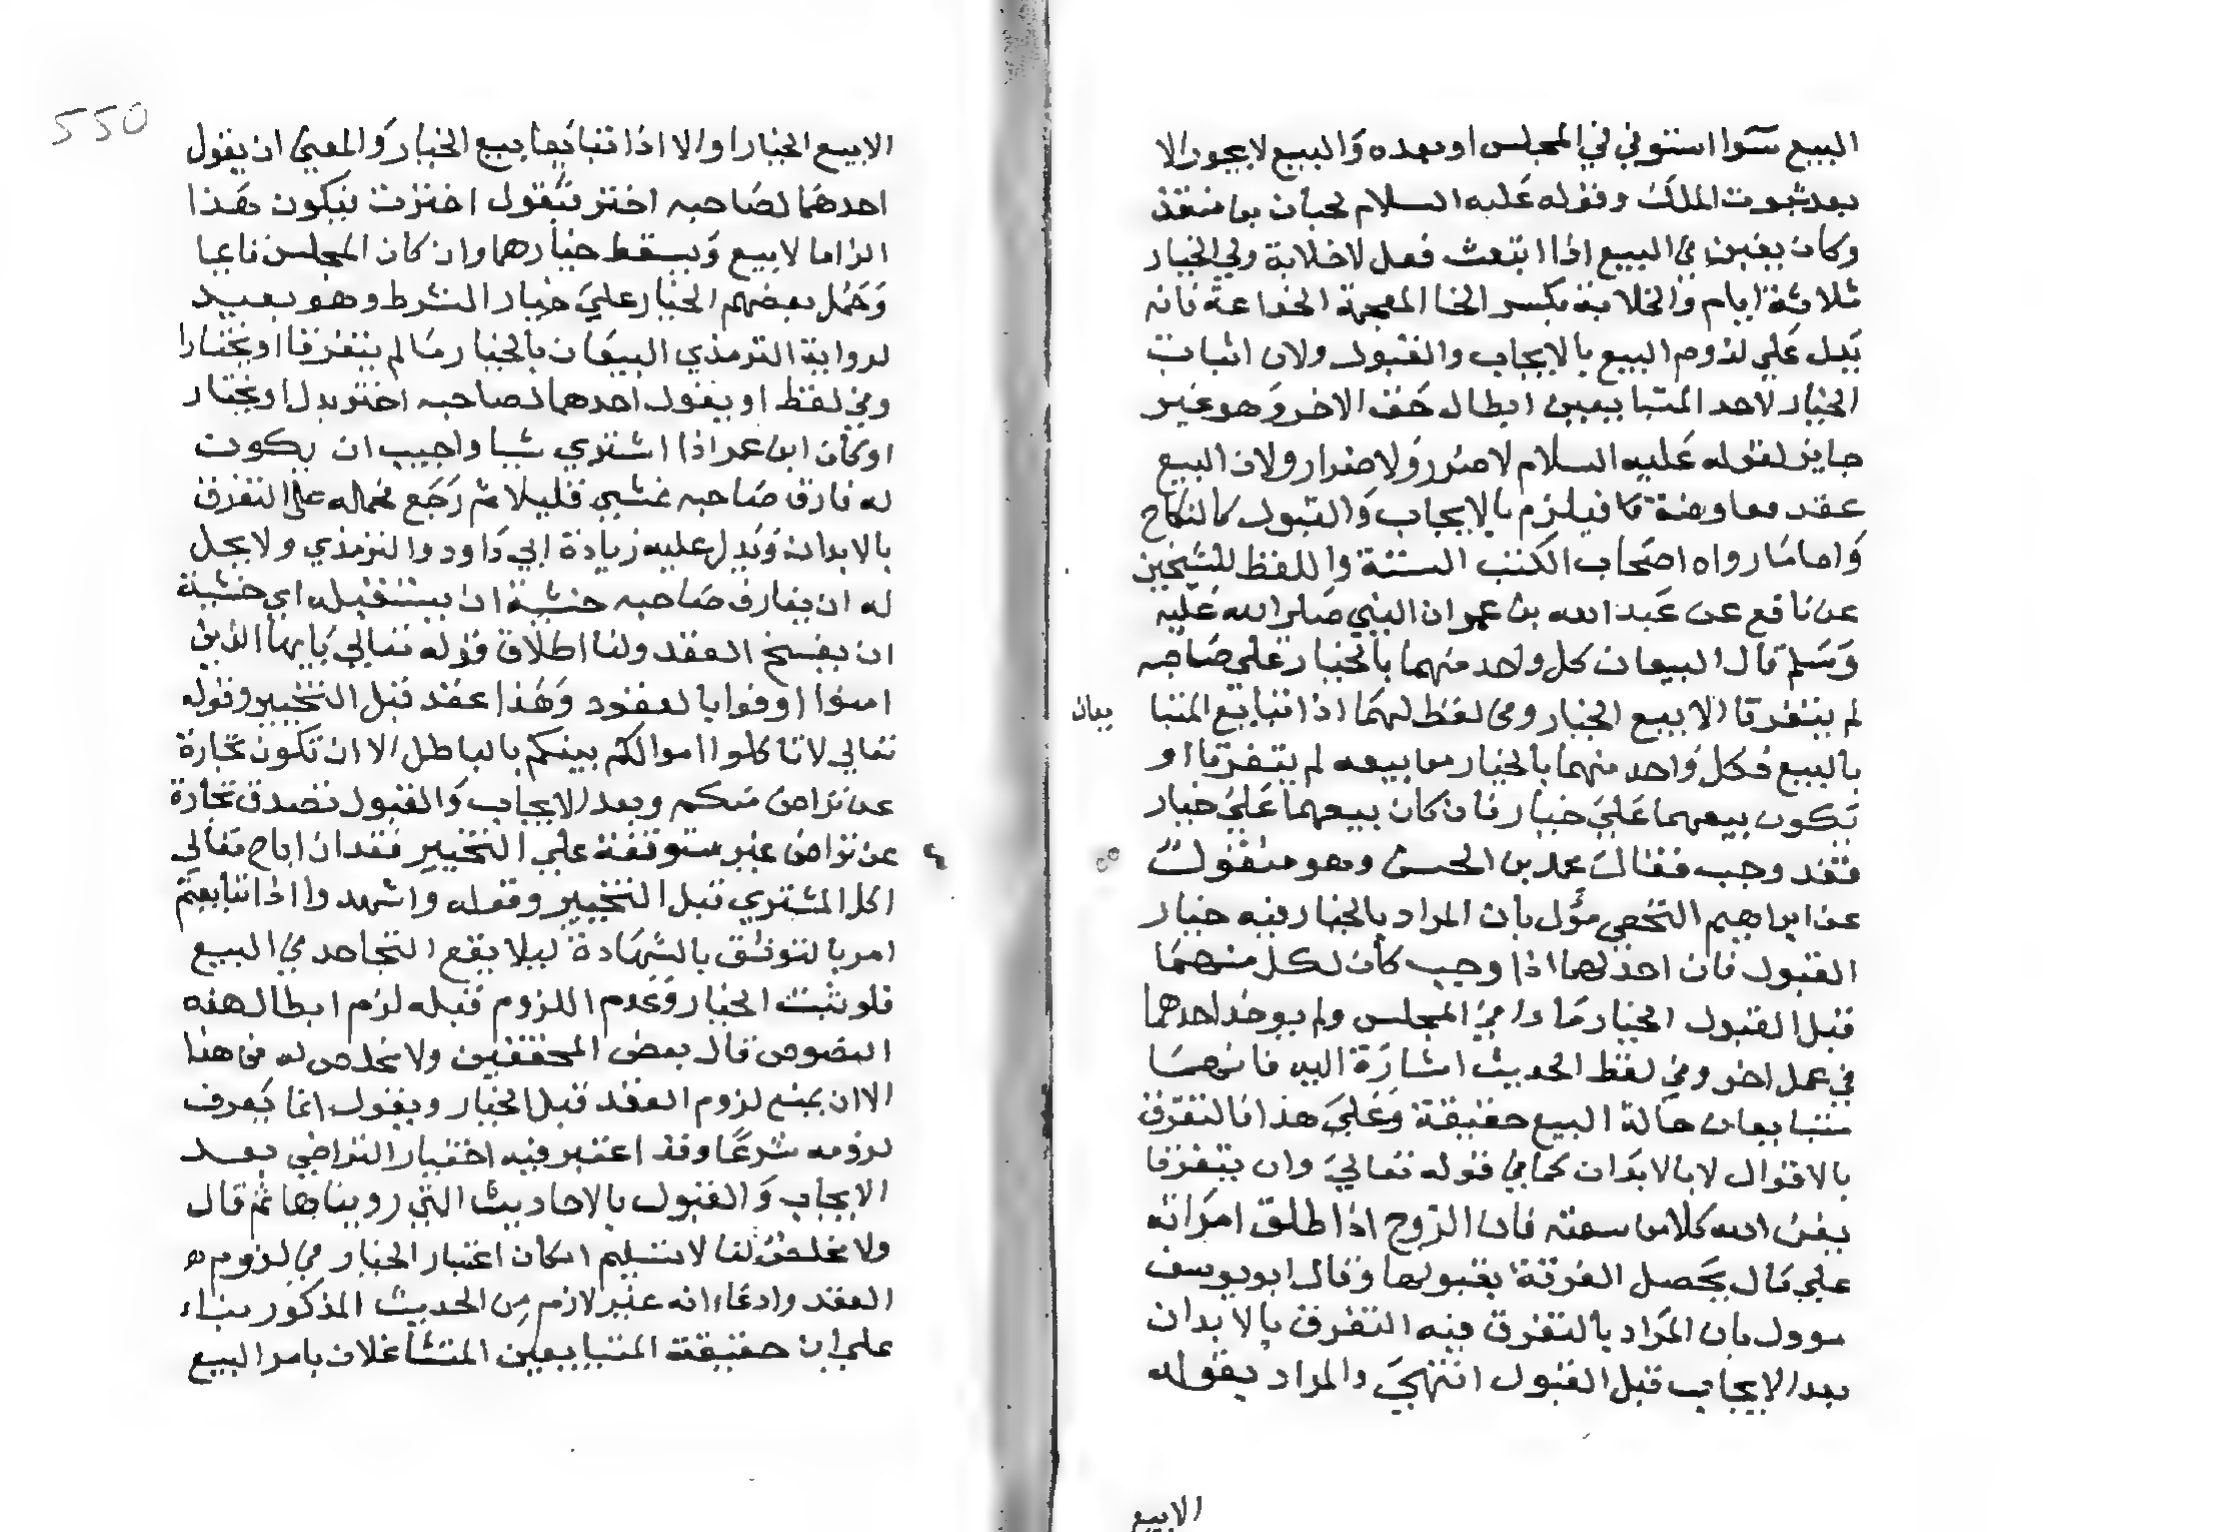 البيع سوا استوفي في المجلس او بعده والبيع لا يجوز الا
بعد ثبوت الملك وقوله عليه السلام لحبان بن منقذ
وكان يغبن في البيع اذا ابتعث فعل لاخلابة ولي الخيار
ثلاثة ايام والخلابة بكسر الخا المعجمة الخداعة فانه
يدل علي لزوم البيع بالايجاب والقبول ولان اثبات
الخيار لاحد المتبايعين ابطال حق الاخر وهو غير
جايز لقوله عليه السلام لا ضرر ولا ضرار ولان البيع
عقد معاوضة فيلزم بالايجاب والقبول كالنكاح
واما ما رواه اصحاب الكتب الستة واللفظ للشيخين
عن نافع عن عبد الله بن عمر ان النبي صلي الله عليه
وسلم قال البيعان كل واحد منهما بالخيار علي صاحبه
لم يتفرقا الا بيع الخيار وفي لفظ لهما اذا تبايع المتبا
بيعان
بالبيع فكل واحد منهما بالخيار من بيعه لم يتفرقا او
تكون بيعهما علي خيار فان كان بيعهما علي خيار
فقد وجب فقال محمد بن الحسن وهو منقول
عن ابراهيم النخعي مؤل بان المراد بالخيار فيه خيار
القبول فان احدهما اذا وجب كان لكل منهما
قبل القبول الخيار ما دام في المجلس ولم يوخذ احدهما
في عمل اخر وفي لفظ الحديث اشارة اليه فانهما
متبايعان حالة البيع حقيقة وعلي هذا فالتفرق
بالاقوال لا بالابدان كما في قوله تعالي وان يتفرقا
يغن الله كلا من سعته فان الزوج اذا طلق امراته
علي مال يحصل الفرقة بقبولها وقال ابو يوسف
موول بان المراد بالتفرق فيه التفرق بالابدان
بعد الايجاب قبل القبول انتهي والمراد بقوله
الابيع
550
الابيع الخيار او الا اذا تبايعا بيع الخيار والمعني ان يقول
احدهما لصاحبه اختر فيقول اخترت فيكون هذا
الزاما لابيع ويسقط خيارهما وان كان المجلس قايما
وحمل بعضهم الخيار علي خيار الشرط وهو بعيد
لرواية الترمذي البيعان بالخيار ما لم يتفرقا او يختارا
وفي لفظ او يقول احدهما لصاحبه اختر بدل او يختار
او كان ابن عمر اذا اشتري شيا واجيب ان يكون
له فارق صاحبه فمشي قليلا ثم رجع فحماله علي التفرق
بالابدان ويدل عليه زيادة ابي داود والترمذي ولا يحل
له ان يفارق صاحبه خشية ان يستقيله اي خشية
ان يفسخ العقد ولنا اطلاق قوله تعالي يايها الذين
امنوا اوفوا بالعقود وهذا عقد قبل التخيير وقوله
تعالي لا تاكلوا اموالكم بينكم بالباطل الا ان تكون تجارة
عن تراض منكم وبعد الايجاب والقبول تصدق تجارة
عن تراض غير متوقفة علي التخيير فقد اباح تعالي
اكل المشتري قبل التخيير وقوله واشهدوا اذا تبايعتم
امر بالتوثق بالشهادة ليلا يقع التجاحد في البيع
فلو ثبت الخيار وعدم اللزوم قبله لزم ابطال هذه
النصوص قال بعض المحققين ولا مخلص له في هذا
الا ان يمنع لزوم العقد قبل الخيار ويقول انما يعرف
لزومه شرعا وقد اعتبر فيه اختيار التراضي بعد
الايجاب والقبول بالاحاديث التي رويناها ثم قال
ولا مخلص لنا لا تسليم امكان اعتبار الخيار في لزوم
العقد وادعاء انه غير لازم من الحديث المذكور بناء
علي ان حقيقة المتبايعين المتشاغلان بامر البيع